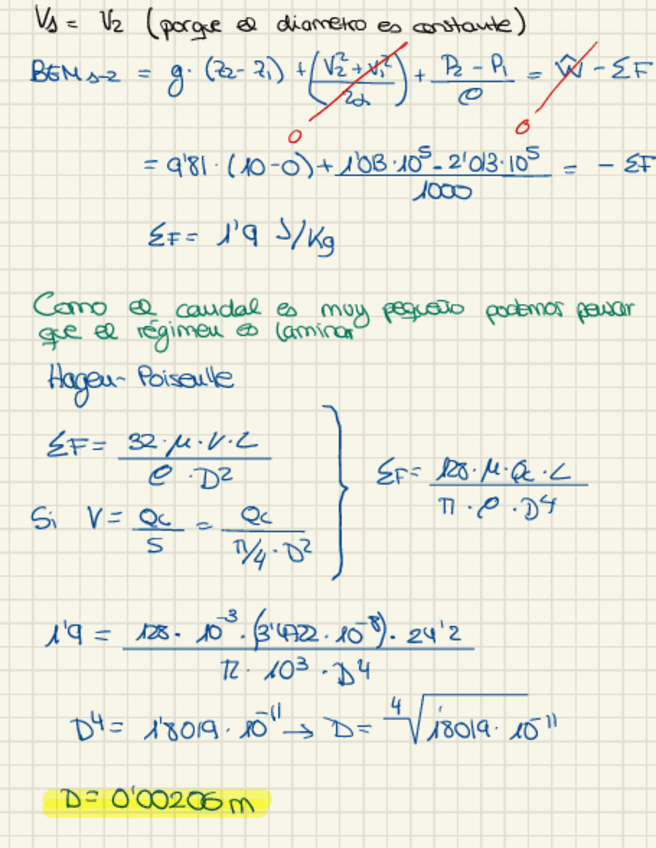 V₁ = V₂ (porque el diametro es constante)
BEM₁₋₂ = g · (z₂ - z₁) + (V₂² + V₁² / 2α) + P₂ - P₁ / ρ = Ŵ - ΣF
0 0
= 9'81 · (10-0) + 1'013·10⁵ - 2'013·10⁵ / 1000 = - ΣF
ΣF = 1'9 J/Kg
Como el caudal es muy pequeño podemos pensar
que el régimen es laminar
Hagen-Poiseuille
ΣF = 32·μ·V·L / ρ·D²
ΣF = 128·μ·Qc·L / π·ρ·D⁴
Si V = Qc / S = Qc / π/4·D²
1'9 = 128· 10⁻³·(3'4722·10⁻⁸)· 24'2 / π· 10³ ·D⁴
D⁴ = 1'8019·10⁻¹¹ → D = ⁴√1'8019·10⁻¹¹
D = 0'00206 m